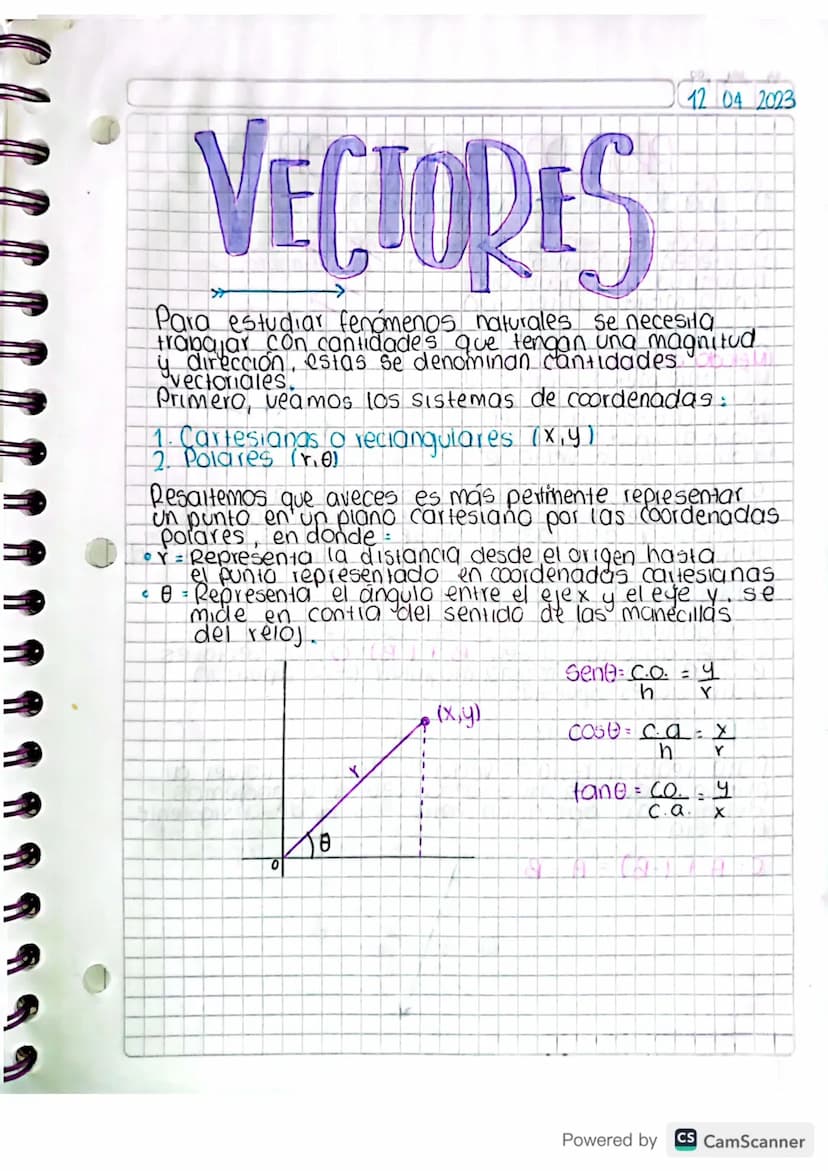 12 04 2023
VECTORES
Para estudiar fenómenos naturales se necesita
trabajar con cantidades que tengan una magnitud
y dirección, estas se denominan cantidades
vectoriales.
Primero, veamos los sistemas de coordenadas:
1. Cartesianas o rectangulares (x,y)
2. Polares (r,θ)
Resaltemos que aveces es más pertinente representar
un punto en un plano cartesiano por las coordenadas
polares, en donde:
• r = Representa la distancia desde el origen hasta
el punto representado en coordenadas cartesianas
• θ = Representa el ángulo entre el eje x y el eje y. se
mide en contra del sentido de las manecillas
del reloj.
senθ = c.o. / h = y / r
(x,y)
cosθ = c.a / h = x / r
r
tanθ = co. / c.a. = y / x
θ
0
Powered by CS CamScanner